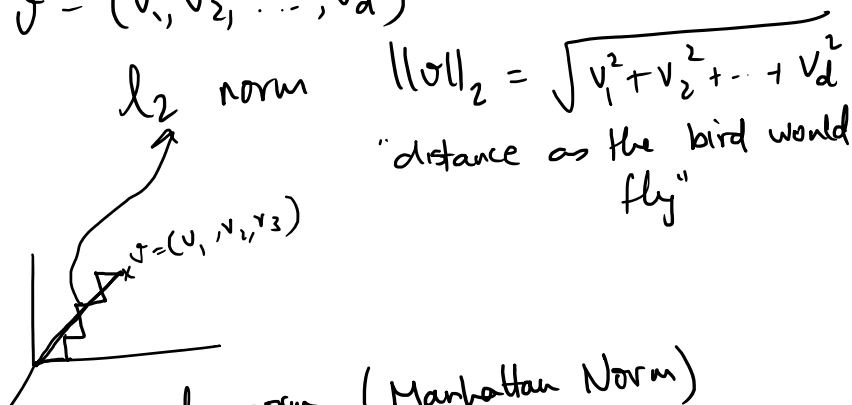 v = (v₁, v₂, ..., v_d)
l₂ norm ||v||₂ = √(v₁² + v₂² + ... + v_d²)
"distance as the bird would
fly"
v=(v₁, v₂, v₃)
norm (Manhattan Norm)